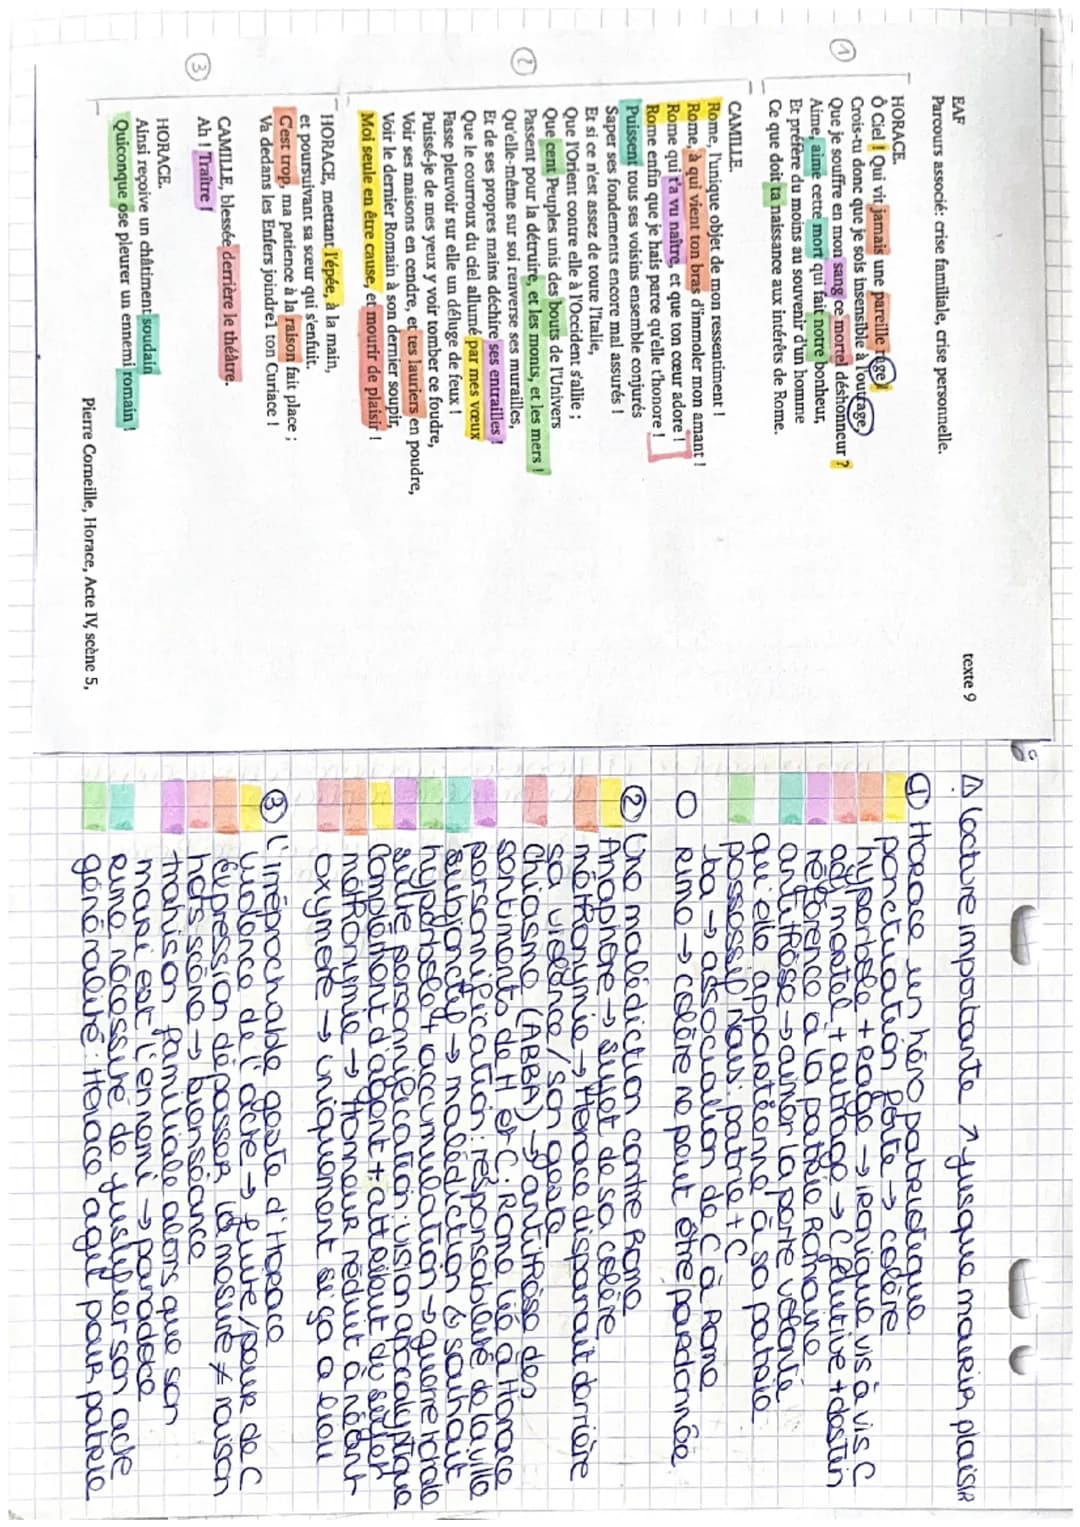 EAF
texte 9
Parcours associé: crise familiale, crise personnelle.
HORACE.
Ô Ciel ! Qui vit jamais une pareille rage !
Crois-tu donc que je sois insensible à l'outrage,
Que je souffre en mon sang ce mortel déshonneur ?
Aime, aime cette mort qui fait notre bonheur,
Et préfère du moins au souvenir d'un homme
Ce que doit ta naissance aux intérêts de Rome.
1
CAMILLE.
Rome, l'unique objet de mon ressentiment !
Rome, à qui vient ton bras d'immoler mon amant !
Rome qui t'a vu naître, et que ton cœur adore !
Rome enfin que je hais parce qu'elle t'honore !
Puissent tous ses voisins ensemble conjurés
Saper ses fondements encore mal assurés !
Et si ce n'est assez de toute l'Italie,
Que l'Orient contre elle à l'Occident s'allie ;
Que cent Peuples unis des bouts de l'Univers
Passent pour la détruire, et les monts, et les mers !
Qu'elle-même sur soi renverse ses murailles,
Et de ses propres mains déchire ses entrailles !
Que le courroux du ciel allumé par mes vœux
Fasse pleuvoir sur elle un déluge de feux !
Puissé-je de mes yeux y voir tomber ce foudre,
Voir ses maisons en cendre, et tes lauriers en poudre,
Voir le dernier Romain à son dernier soupir,
Moi seule en être cause, et mourir de plaisir !
2
HORACE, mettant l'épée, à la main,
et poursuivant sa sœur qui s'enfuit.
C'est trop, ma patience à la raison fait place ;
Va dedans les Enfers joindre1 ton Curiace !
CAMILLE, blessée derrière le théâtre.
Ah ! Traître !
3
HORACE.
Ainsi reçoive un châtiment soudain
Quiconque ose pleurer un ennemi romain !
Pierre Corneille, Horace, Acte IV, scène 5,
⚠ lecture importante ↗ jusque mourir plaisir
1 Horace un héro patriotique
ponctuation forte → colère
hyperbole + rage → ironique vis à vis C
adj mortel + outrage → C fautive + destin
référence à la patrie Romaine
antithèse → aimer la perte volonté
qu'elle appartienne à sa patrie
possessif nous: patrie + C
ta → association de C à Rome
O rime → colère ne peut être pardonnée
2 Une malédiction contre Rome
Anaphore → sujet de sa colère
métonymie → Horace disparait derrière
sa violence / son geste
chiasme (ABBA) → antithèse des
sentiments de H et C: Rome lié à Horace
personnification: responsabilité de la ville
subjonctif → malédiction & souhait
hyperbole + accumulation → guerre totale
suite personnification: vision apocalyptique
complément d'agent + attribut du sujet
métonymie → Honneur réduit à néant
oxymore → uniquement si ça a lieu
3 L'inéprochable geste d'Horace
violence de l'acte → fuite / peur de C
expression dépasser la mesure ≠ raison
hors scène → bienséance
trahison familiale alors que son
mari est l'ennemi → paradoxe
rime nécessité de justifier son acte
généralité: Horace agit pour patrie